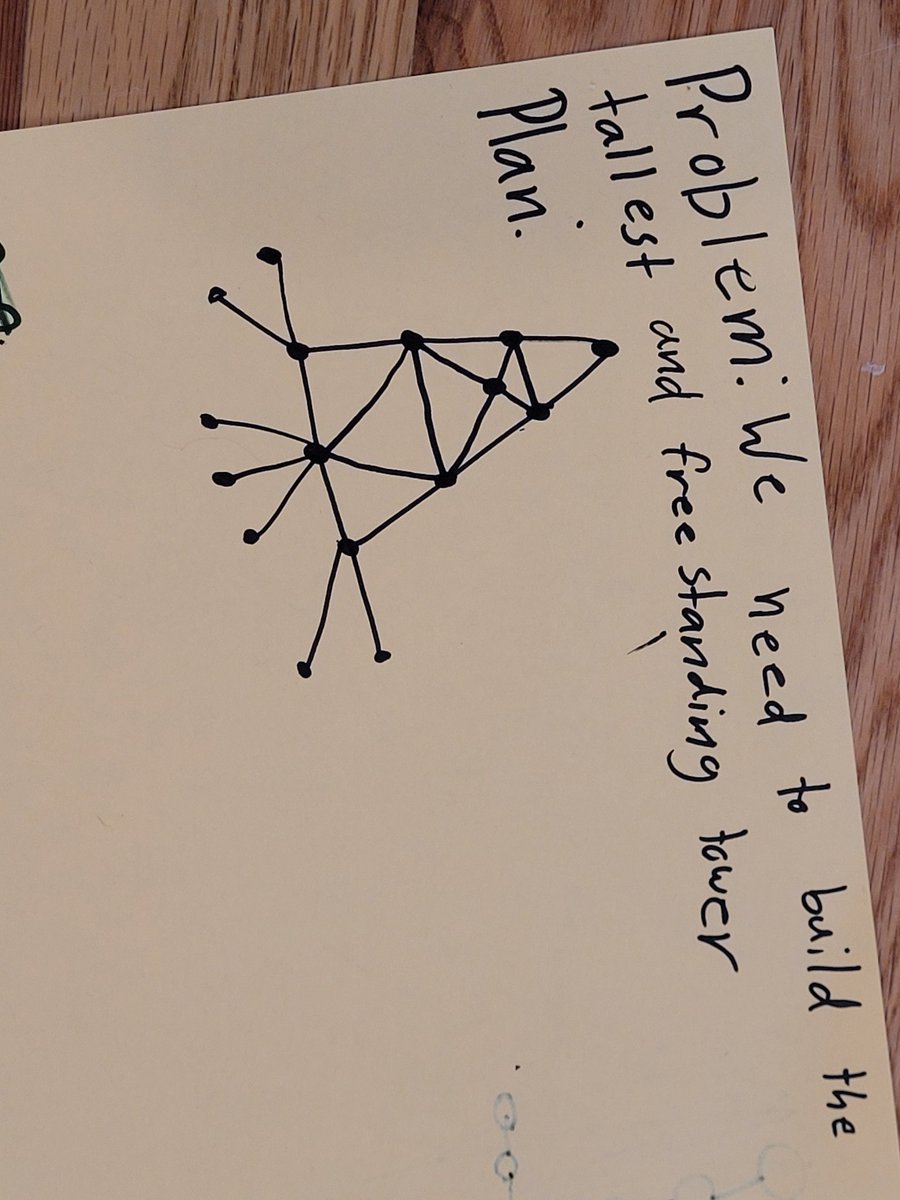 Problem: We need to build the
tallest and free standing tower
Plan: